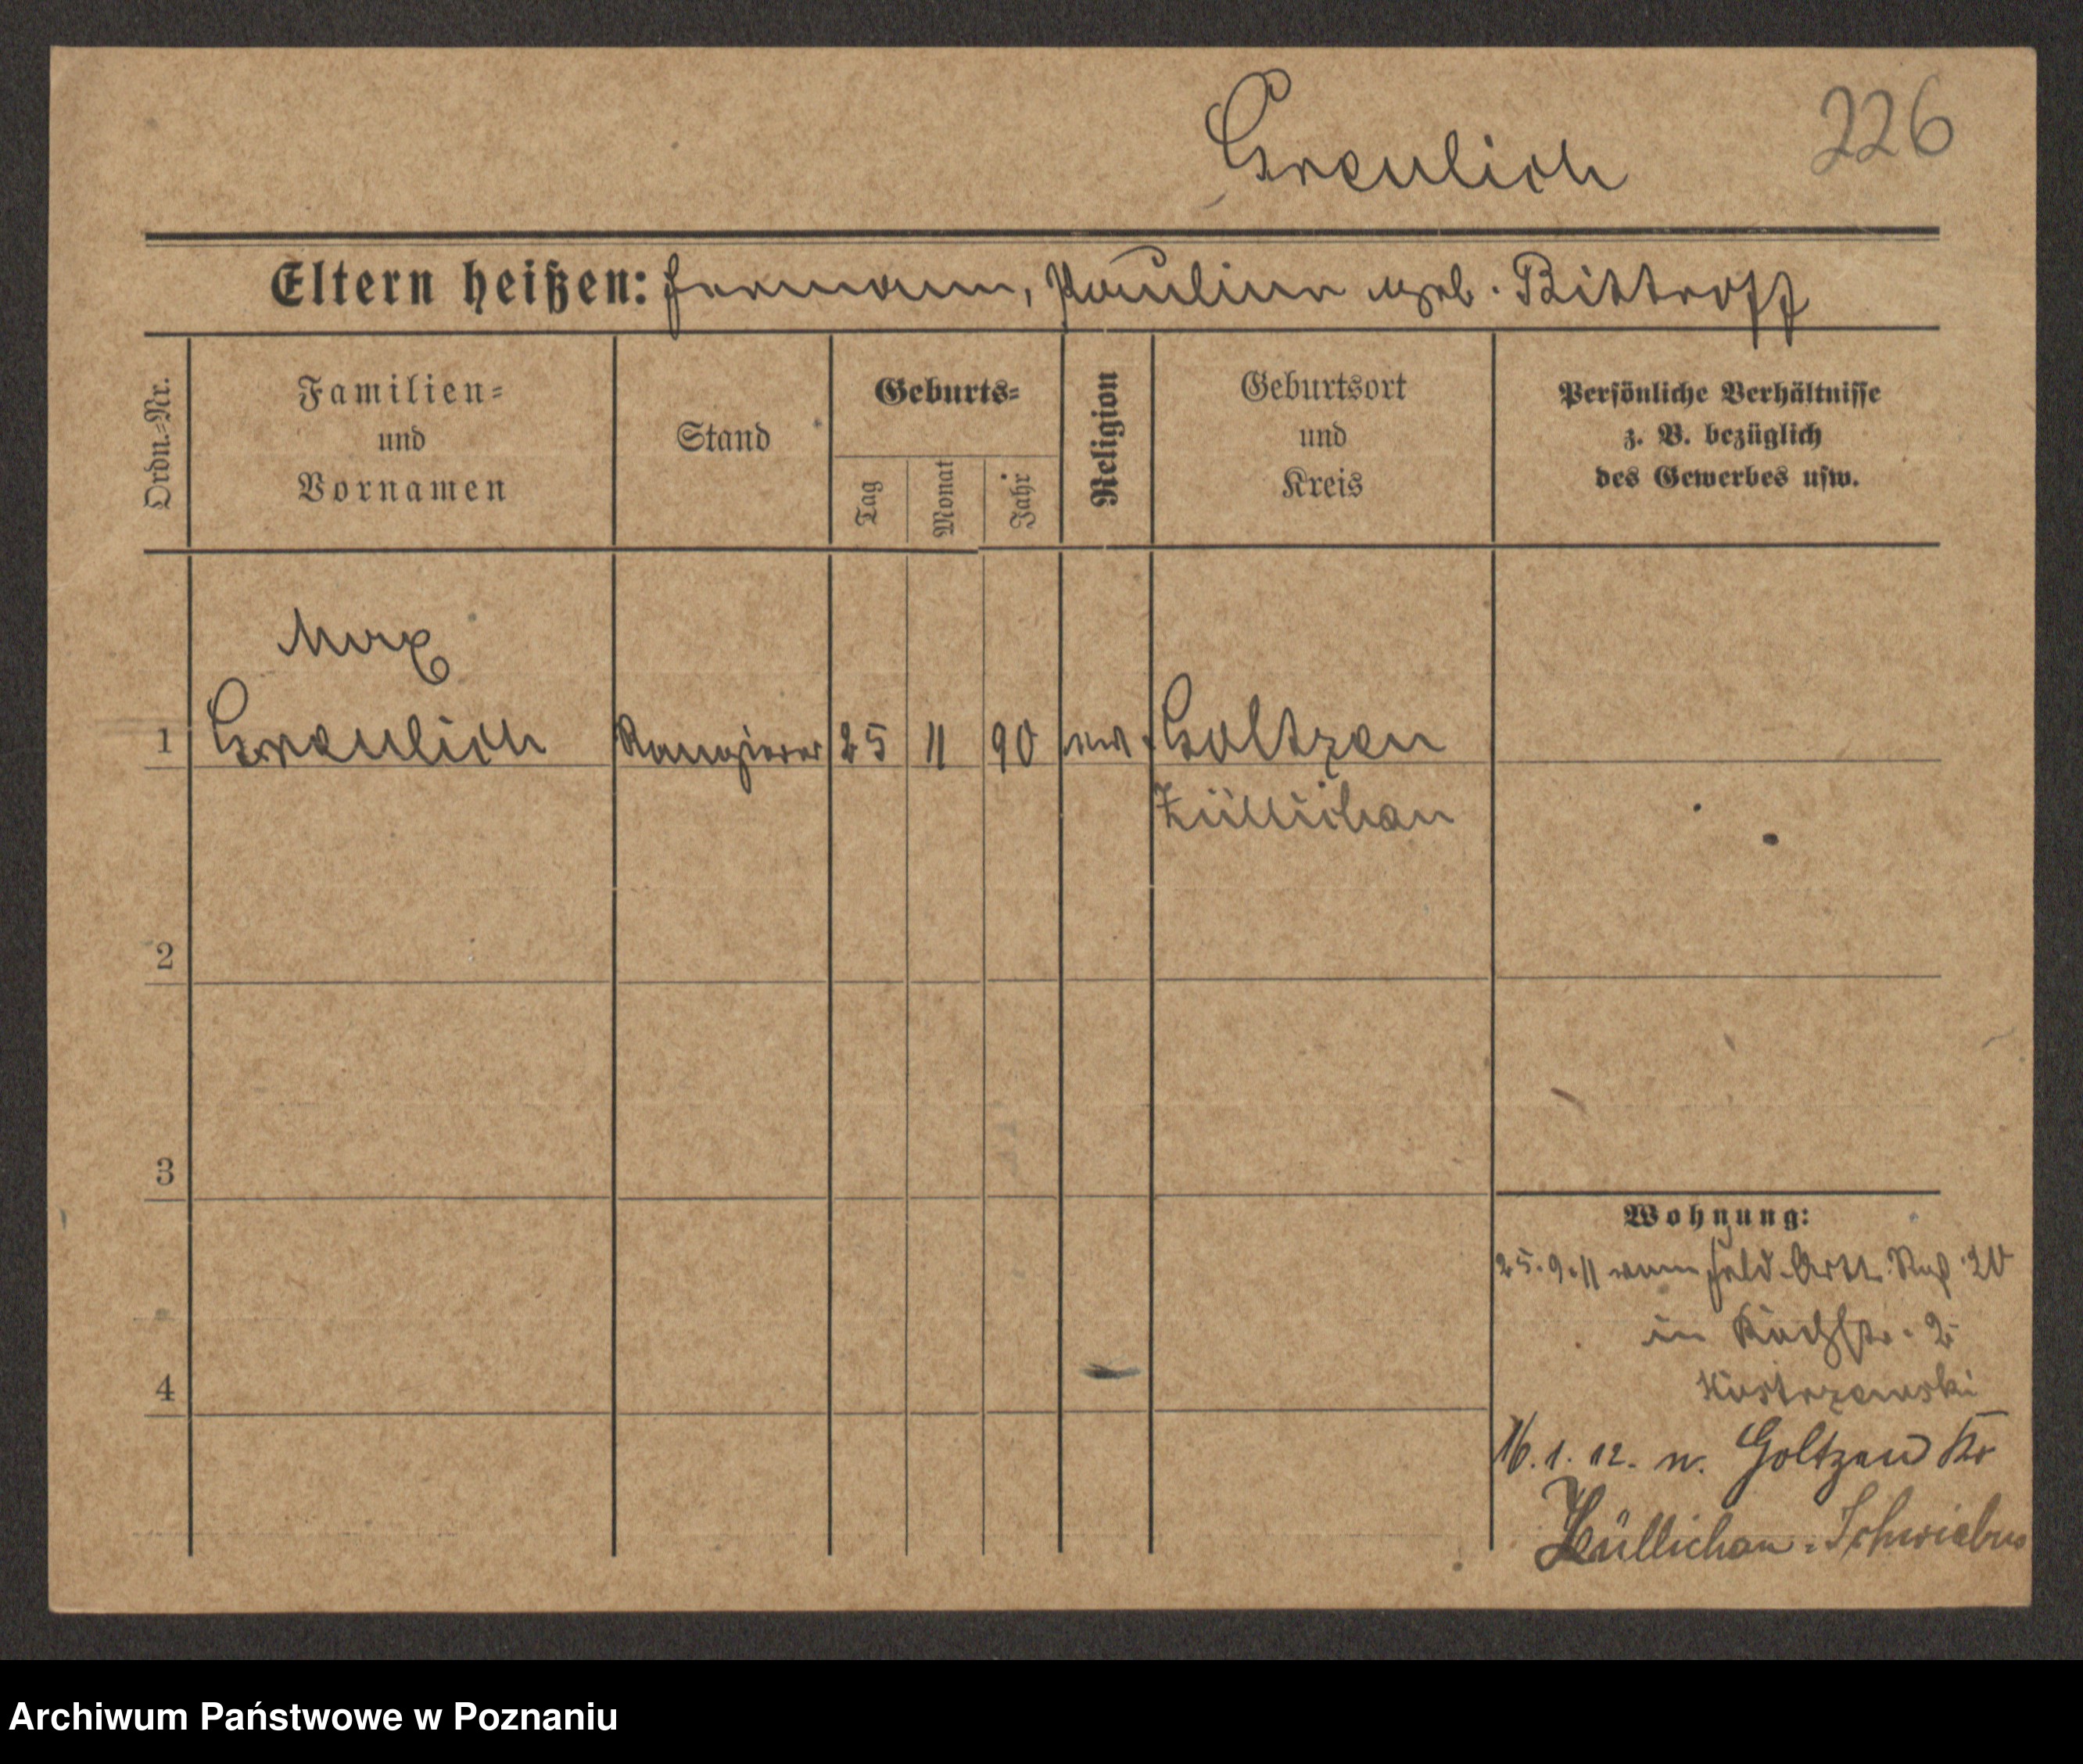 Greulich 226
Eltern heißen: Hermann, Pauline geb. Bittroff
Ordn.-Nr.
Familien-
und
Vornamen
Stand
Geburts-
Tag
Monat
Jahr
Religion
Geburtsort
und
Kreis
Persönliche Verhältnisse
z. B. bezüglich
des Gewerbes usw.
Max
1 Greulich Rangierer 25 11 90 Goltzen
Züllichau
2
3
4
Wohnung:
25.9.11 vom Feld-Artl. Rg. 20
in 2
Kostrzewski
16.1.12. n. Goltzen Kr
Züllichau-Schwiebus
Archiwum Państwowe w Poznaniu